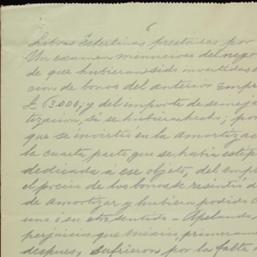 6
Libras Esterlinas prestadas por
Un examen minucioso del nego
de que hubieran sido invertidas
cion de bonos del anterior Empre
£ 63.000; y del importe de semeja
tizacion, si se hubiera hecho; por
que se invirtió en la amortizac
la cuarta parte que se habia estip
dedicada a ese objeto, del emp
el precio de los bonos
de amortizar y hubiera podido
una ú en otro sentido - Apelando
perjuicios que hicieron, primeram
despues, sufrieron por la falta d